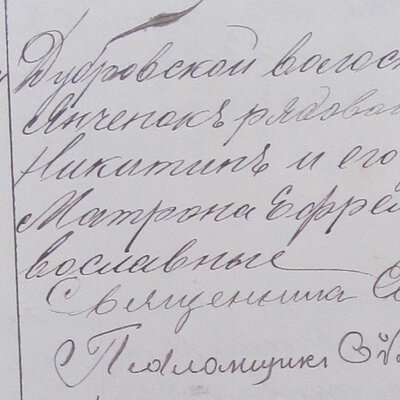 Дубровской волос
Янченокъ рядовой
Никитинъ и его
Матрона Ефре
вославные
Священника
Псаломщикъ